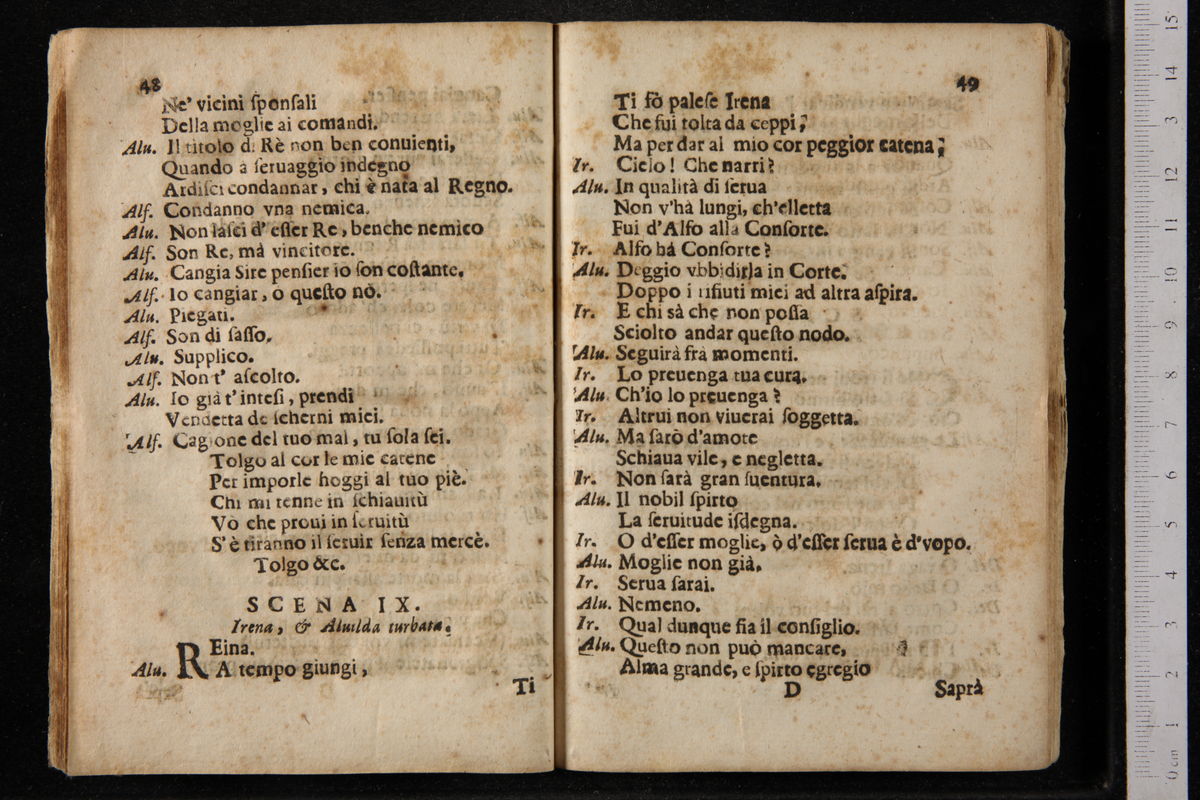 48
Ne' vicini ſponſali
Della moglie ai comandi.
Alu. Il titolo di Rè non ben conuienti,
Quando a ſeruaggio indegno
Ardiſci condannar, chi è nata al Regno.
Alf. Condanno vna nemica.
Alu. Non laſci d' eſſer Re, benche nemico
Alf. Son Re, mà vincitore.
Alu. Cangia Sire penſier io ſon coſtante.
Alf. Io cangiar, ò queſto nò.
Alu. Piegati.
Alf. Son di ſaſſo.
Alu. Supplico.
Alf. Non t' aſcolto.
Alu. Io già t' inteſi, prendi
Vendetta de ſcherni miei.
Alf. Cagione del tuo mal, tu ſola ſei.
Tolgo al cor le mie catene
Per imporle hoggi al tuo piè.
Chi mi tenne in ſchiauitù
Vò che proui in ſeruitù
S'è tiranno il ſeruir ſenza mercè.
Tolgo &c.
SCENA IX.
Irena, & Aluilda turbata.
REina.
Alu. A tempo giungi,
Ti
49
Ti fò paleſe Irena
Che fui tolta da ceppi;
Ma per dar al mio cor peggior catena;
Ir. Cielo! Che narri?
Alu. In qualità di ſerua
Non v'hà lungi, ch'elletta
Fui d'Alfo alla Conſorte.
Ir. Alfo há Conſorte?
Alu. Deggio vbbidirla in Corte.
Doppo i rifiuti miei ad altra aſpira.
Ir. E chi sà che non poſſa
Sciolto andar queſto nodo.
Alu. Seguirà frà momenti.
Ir. Lo preuenga tua cura.
Alu. Ch'io lo preuenga?
Ir. Altrui non viuerai ſoggetta.
Alu. Ma ſarò d'amore
Schiaua vile, e negletta.
Ir. Non ſarà gran ſuentura.
Alu. Il nobil ſpirto
La ſeruitude iſdegna.
Ir. O d'eſſer moglie, ò d'eſſer ſerua è d'vopo.
Alu. Moglie non già.
Ir. Serua ſarai.
Alu. Nemeno.
Ir. Qual dunque fia il conſiglio.
Alu. Queſto non può mancare,
Alma grande, e ſpirto egregio
D
Saprà
0 cm 1 2 3 4 5 6 7 8 9 10 11 12 13 14 15